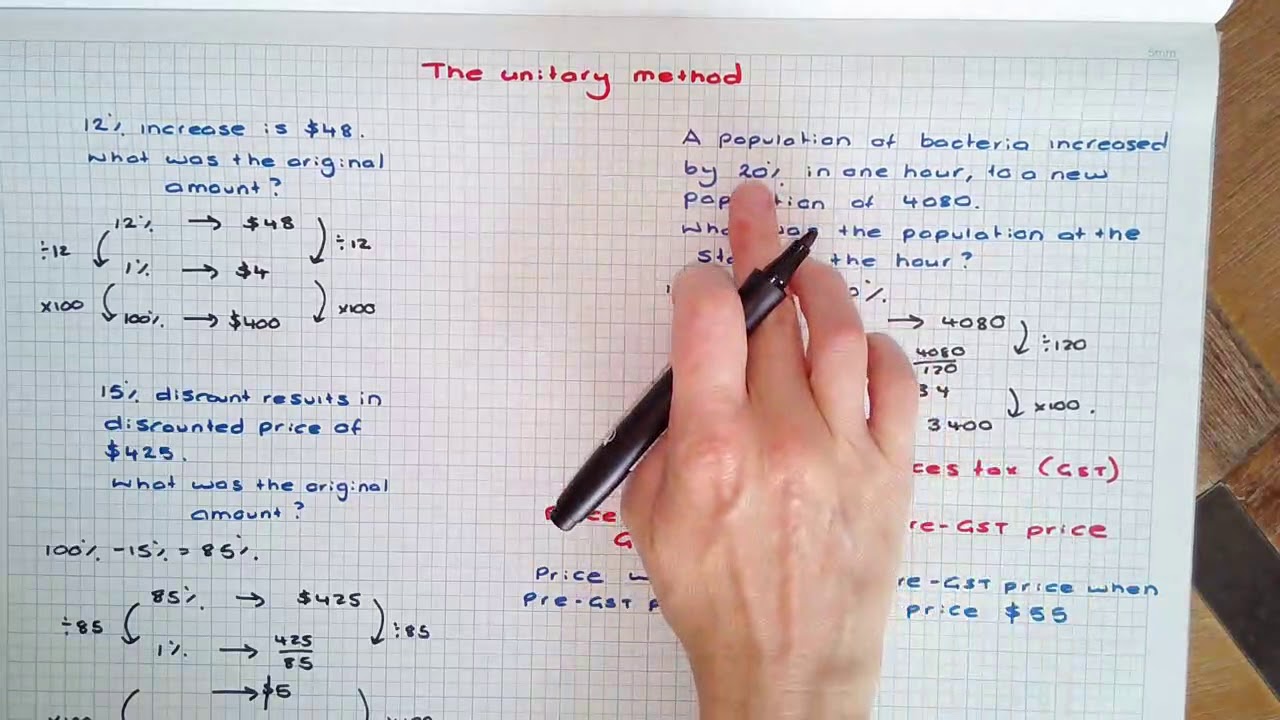 5mm
The unitary method
12% increase is $48.
What was the original
amount?
12% → $48
÷12 ÷12
1% → $4
x100 x100
100% → $400
15% discount results in
discounted price of
$425.
What was the original
amount?
100% - 15% = 85%.
85% → $425
÷85 ÷85
1% → 425/85
→ $5
A population of bacteria increased
by 20% in one hour, to a new
of 4080.
the population at the
the hour?
→ 4080
÷120
4080/120
34
x100.
3400
tax (GST)
price
Price
Pre-GST price when
Pre-GST price $55